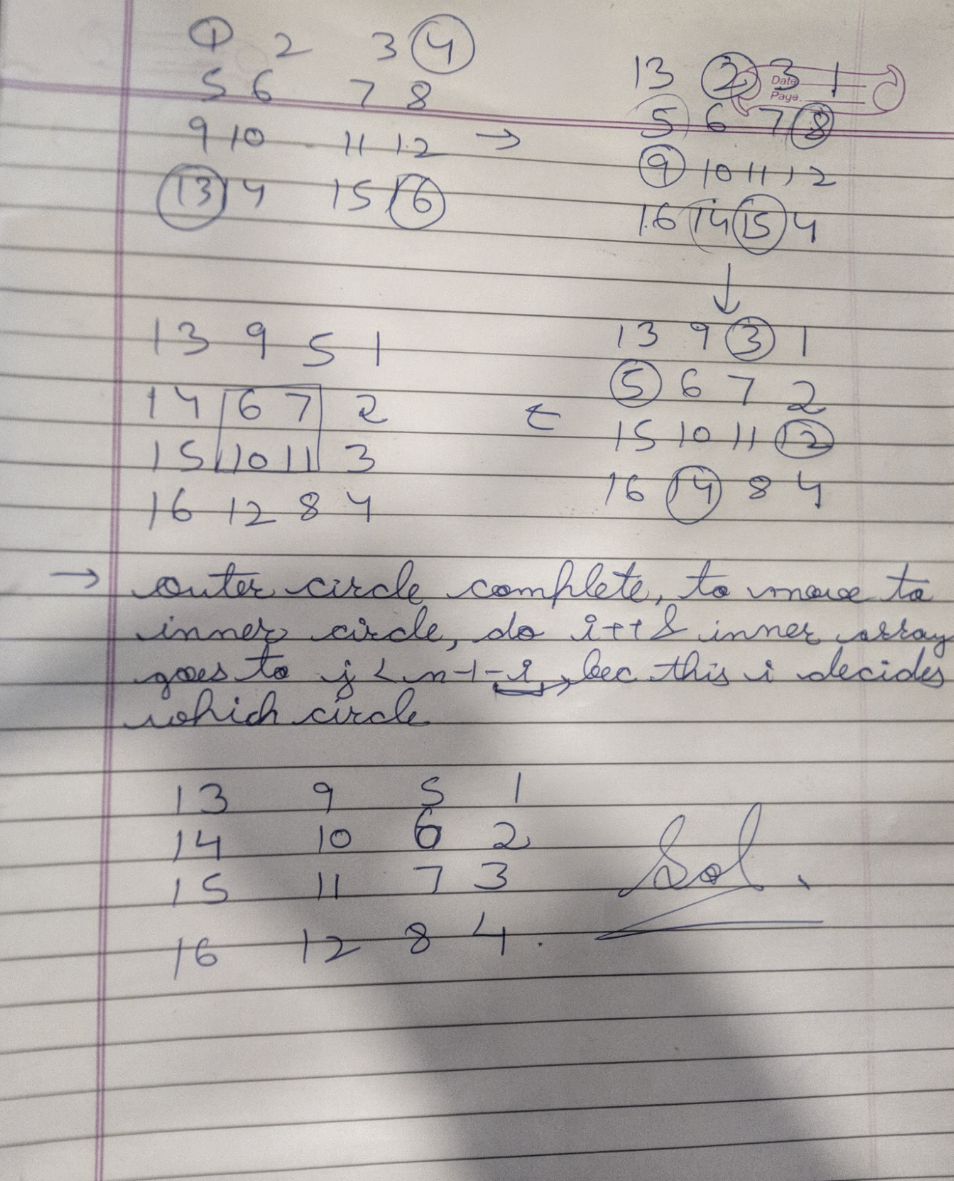 1 2 3 4
5 6 7 8
9 10 11 12 →
13 14 15 16
13 2 3 1
Date
Page
5 6 7 8
9 10 11 12
16 14 15 4
↓
13 9 3 1
5 6 7 2
15 10 11 12
16 14 8 4
13 9 5 1
14 6 7 2
15 10 11 3
16 12 8 4
→ outer circle complete, to move to
inner circle, do i++ & inner array
goes to j < n-1-i, bec this i decides
which circle
13 9 5 1
14 10 6 2
15 11 7 3
16 12 8 4.
Sol.